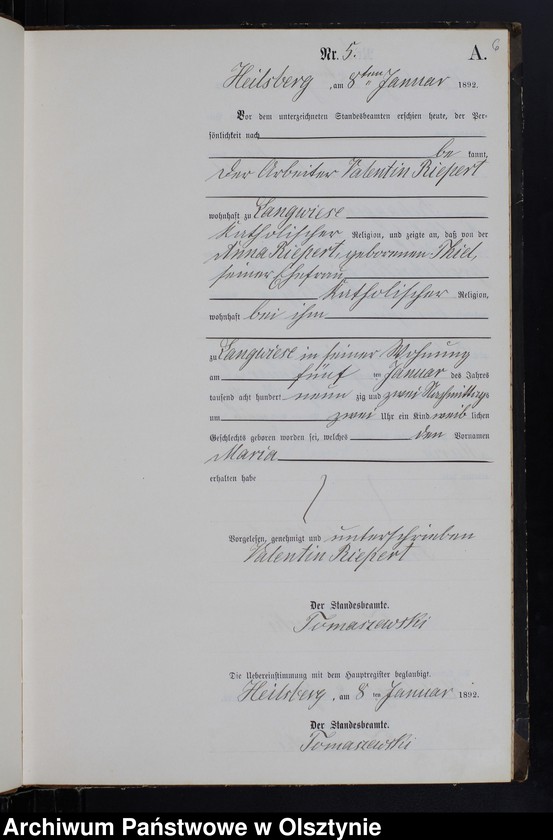 Nr. 5.
A.
6
Heilsberg, am 8ten Januar 1892.
Vor dem unterzeichneten Standesbeamten erschien heute, der Per-
sönlichkeit nach
be kannt,
der Arbeiter Valentin Riepert
wohnhaft zu Langwiese
katholischer Religion, und zeigte an, daß von der
Anna Riepert, geborenen Thiel,
seiner Ehefrau
katholischer Religion,
wohnhaft bei ihm
zu Langwiese in seiner Wohnung
am fünf ten Januar des Jahres
tausend acht hundert neun zig und zwei Nachmittags
um zwei Uhr ein Kind weib lichen
Geschlechts geboren worden sei, welches den Vornamen
Maria
erhalten habe
Vorgelesen, genehmigt und unterschrieben
Valentin Riepert
Der Standesbeamte.
Tomaszewski
Die Uebereinstimmung mit dem Hauptregister beglaubigt.
Heilsberg, am 8 ten Januar 1892.
Der Standesbeamte.
Tomaszewski
Archiwum Państwowe w Olsztynie